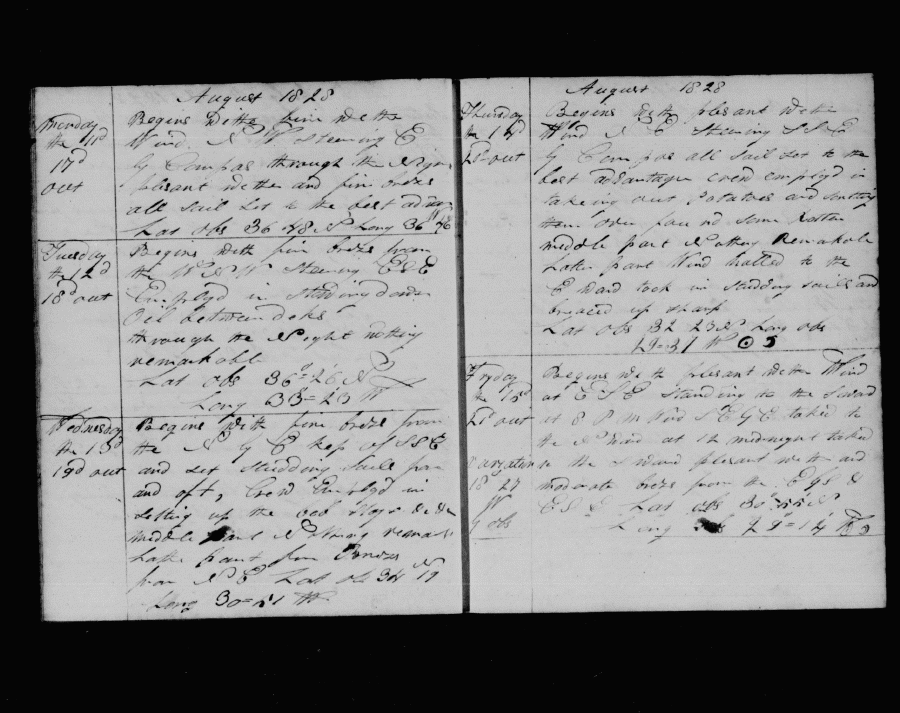 August 1828
Monday
the 11d
17d
out
Begins with fine weather
Wind N W Steering E
By Compas through the Night
plesant wether and fine brezes
all sail set to the best advan
Lat obs 36 48 N Long 36
Tuesday
the 12d
18d out
Begins with fine brezes from
the W N W Steering ESE
Employd in Stowing down
Oil between deks
through the Night nothing
remarkable
Lat obs 36 = 26 N
Long 33 = 23 W
Wednesday
the 13d
19d out
Begins with fine brezes from
the N By E kep of SSE
and set Studding Sails for
and aft, Crew Employd in
Setting up the
middle part Nothing remark
Later part fine Brezes
from N E Lat obs 34 N 19
Long 30 = 51 W
August 1828
Thursday
the 14d
out
Begins with plesant wether
Wind N E Steering S S E
By Compas all sail set to the
best advantage crew employd in
takeing out Potatoes and
them over found some Rotten
middle part Nothing Remakable
Later part Wind halled to the
E ward took in studding sails and
braced up sharp
Lat obs 32 23 N Long obs
29 = 31 W
Fryday
the 15d
21d out
Begins with plesant wether Wind
at E S E Standing to the the Sward
at 8 P M Wind S E By E taked to
the N Wind at 12 midnaught taked
Variation
18 27
W
By obs
to the S ward plesant wether and
moderate brezes from the E By S &
E S E Lat obs 30 = 55 N
Long obs 29 = 14 W